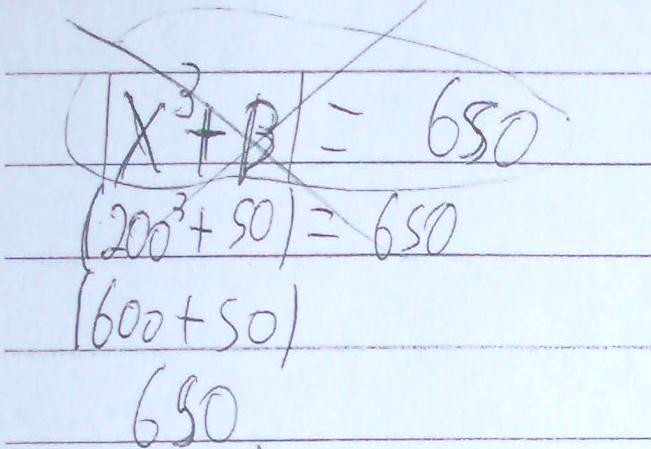 |X³+B| = 650
(200³+50) = 650
(600+50)
650